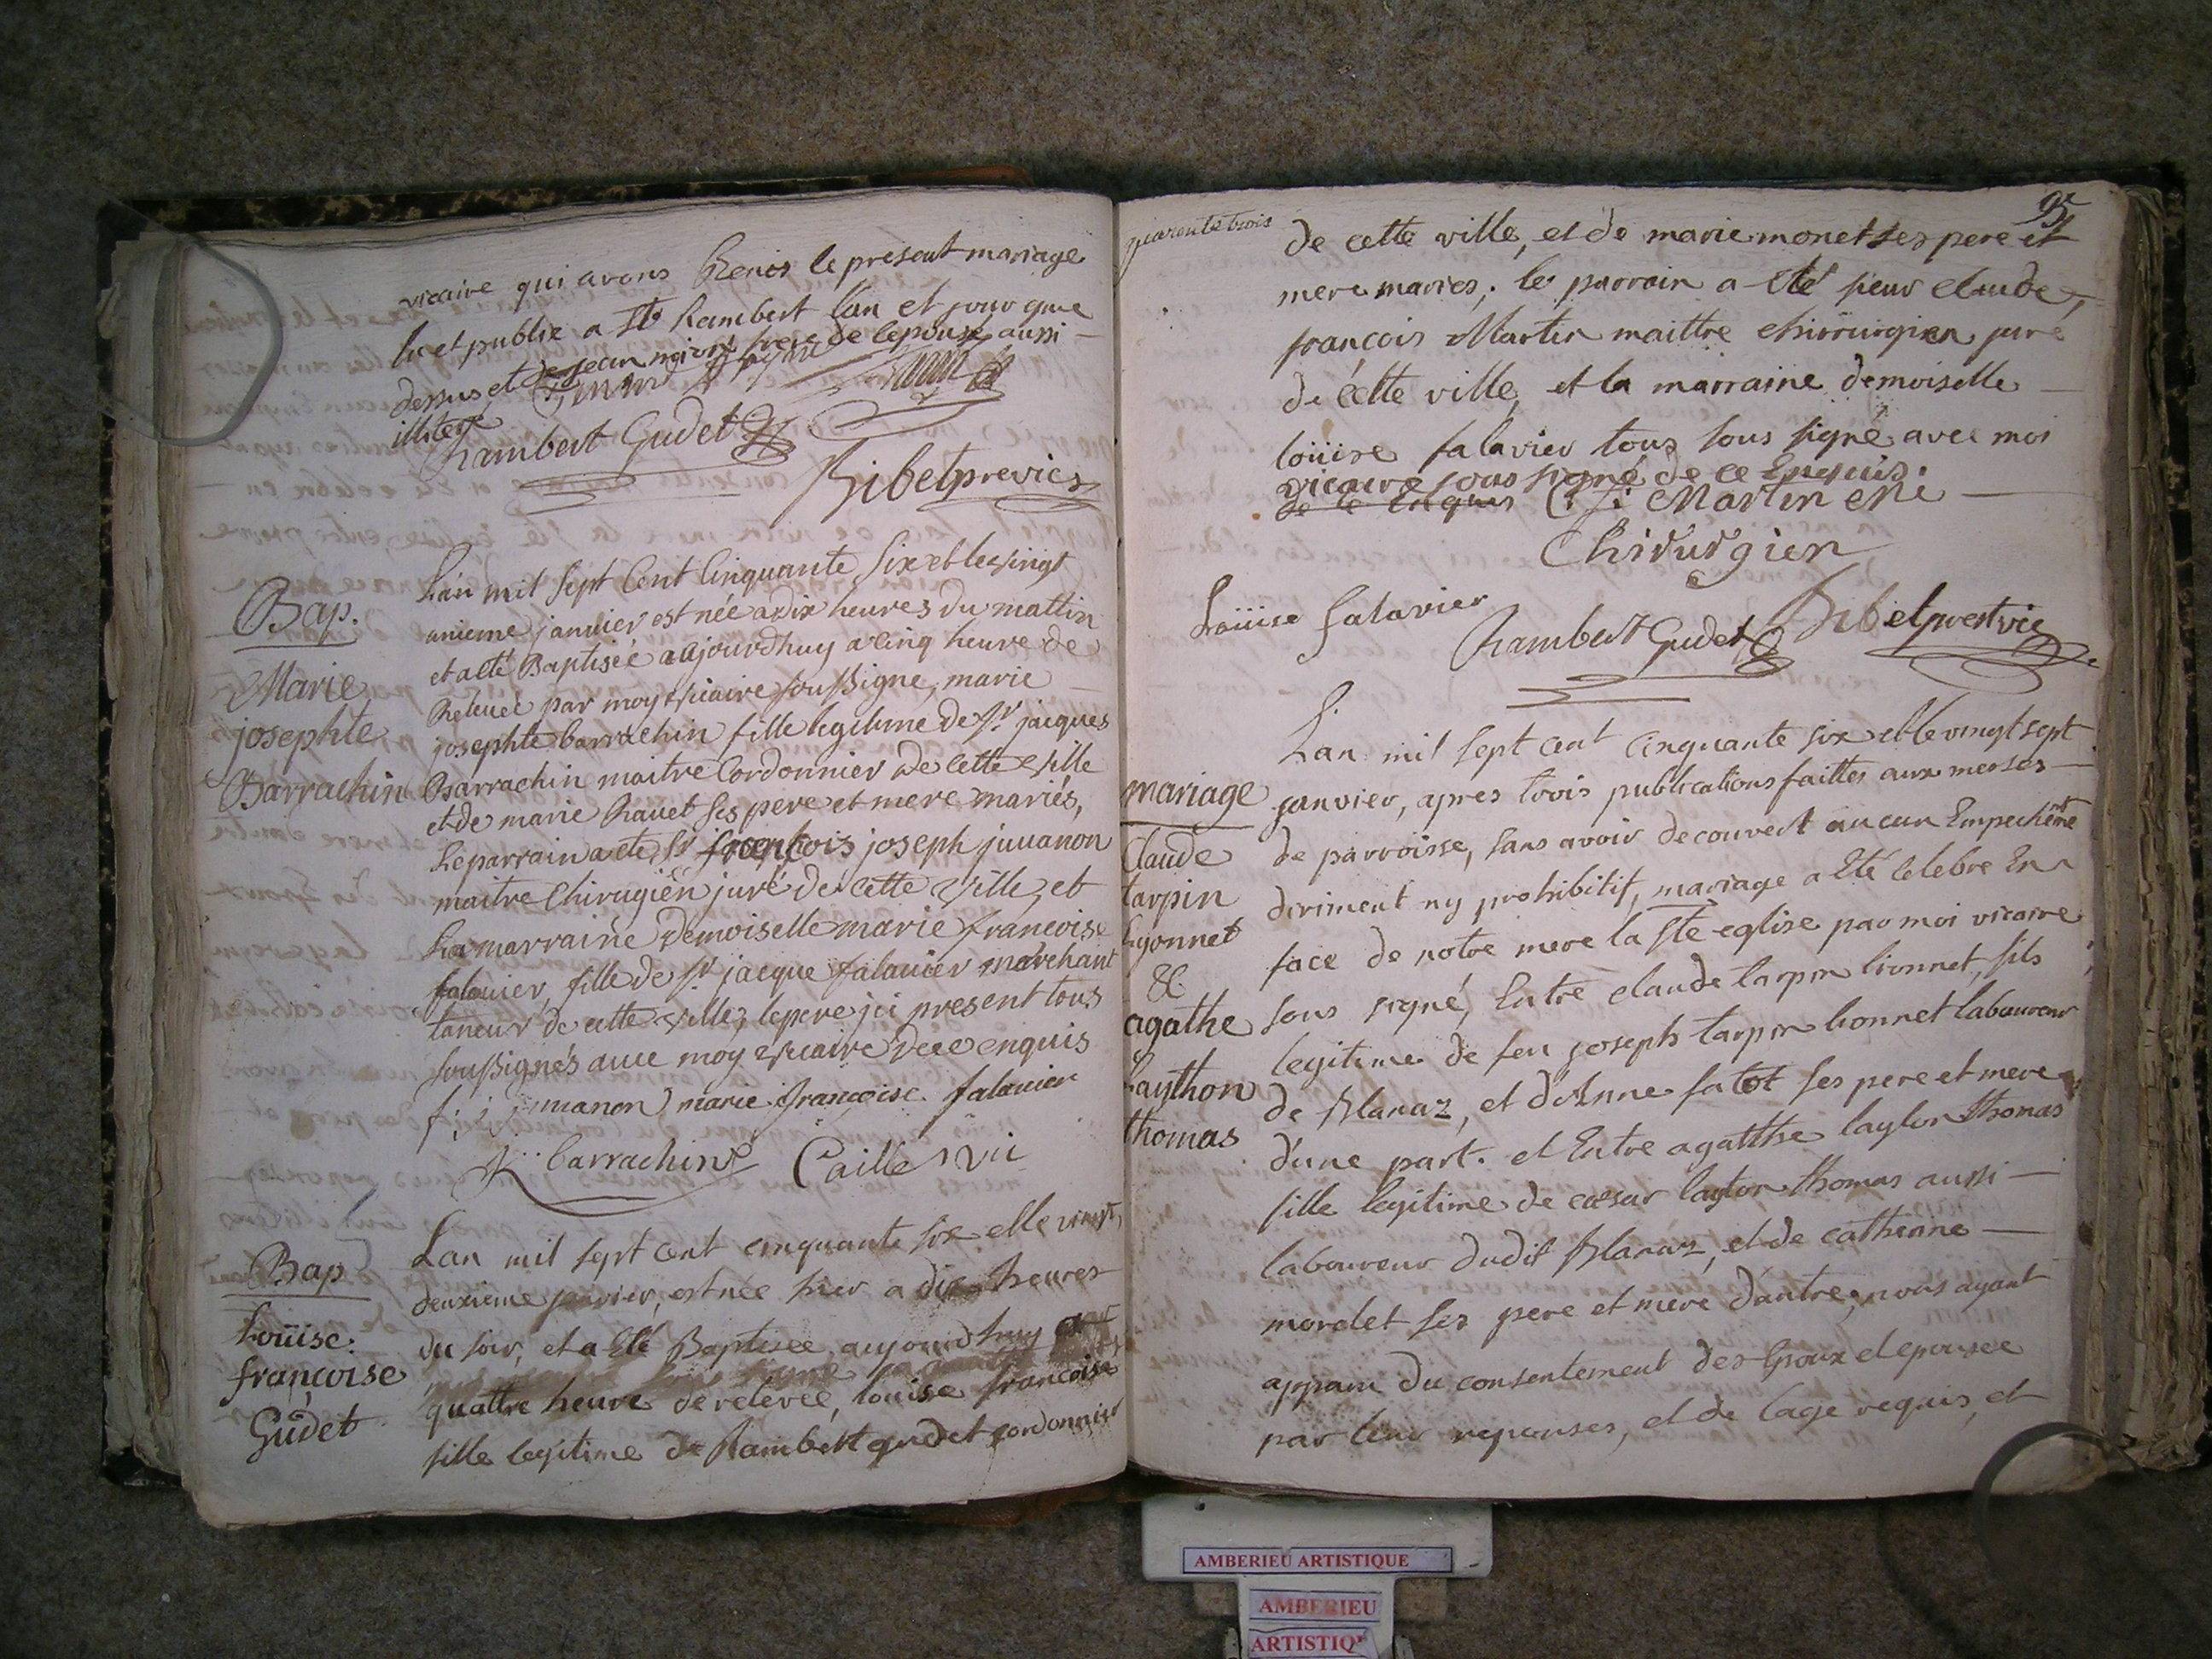 vicaire qui avons benis le present mariage
lu et publie a St Rambert l'an et jour que
dessus et de jean frere de lepouse aussi
illiteré
Rambert Gudet
Ribet prevics
Bap.
Marie
josephte
Barrachin
L'an mil sept Cent Cinquante Six et le vingt
unieme janvier est née a dix heures du mattin
et a eté Baptisée aujourdhuy a Cinq heure de
Relevée par moy vicaire soussigne, marie
josephte barrachin fille legitime de Sr jacques
Barrachin maitre Cordonnier de cette ville
et de marie Ravet ses pere et mere mariés,
Le parrain a eté Sr françois joseph juvanon
maitre Chirugien juré de cette ville, et
La marraine Demoiselle marie francoise
falavier, fille de Sr jacque falavier marchant
taneur de cette ville, le pere ici present tous
soussignés avec moy vicaire de ce enquis
f: j: juvanon marie françoise falavier
J: barrachin Caille vic
Bap
Loüise
françoise
Güdet
Lan mil sept cent cinquante six et le vingt
deuxieme janvier, est née hier a dix heures
du soir, et a Eté Baptisée aujourdhuy
quattre heure de relevée, louise francoise
fille legitime de Rambert gudet cordonnier
quarente trois
de cette ville, et de marie monet ses pere et
mere maries; le parrain a eté sieur claude
françois Martin maittre chirrurgien juré
de cette ville, et la marraine demoiselle
loüise falavier tous sous signé avec moi
vicaire sous signé de ce Enquis.
de ce Enquis C: f: Martin me
Chirurgien
Loüise falavier
Rambert Gudet Ribet prest vic
mariage
Claude
tarpin
lyonnet
&
agathe
laython
thomas
L'an mil sept cent cinquante six et le vingt sept
janvier, apres trois publications faittes aux messes
de parroisse, sans avoir decouvert aucun Empechemt
diriment ny prohibitif, mariage a Eté celebre En
face de notre mere la Ste eglise par moi vicaire
sous signé, Entre claude tarpin lionnet, fils
legitime de feu joseph tarpin lionnet laboureur
de Blanaz, et d'Anne fatot ses pere et mere
d'une part. et Entre agatthe layton thomas
fille legitime de cæsar layton thomas aussi
laboureur dudit Blanaz, et de catherine
mordet ses pere et mere d'autre; nous ayant
apparu du consentement des Epoux et epousee
par leur reponses, et de l'age requis, et
AMBERIEU ARTISTIQUE
AMBERIEU
ARTISTIQUE